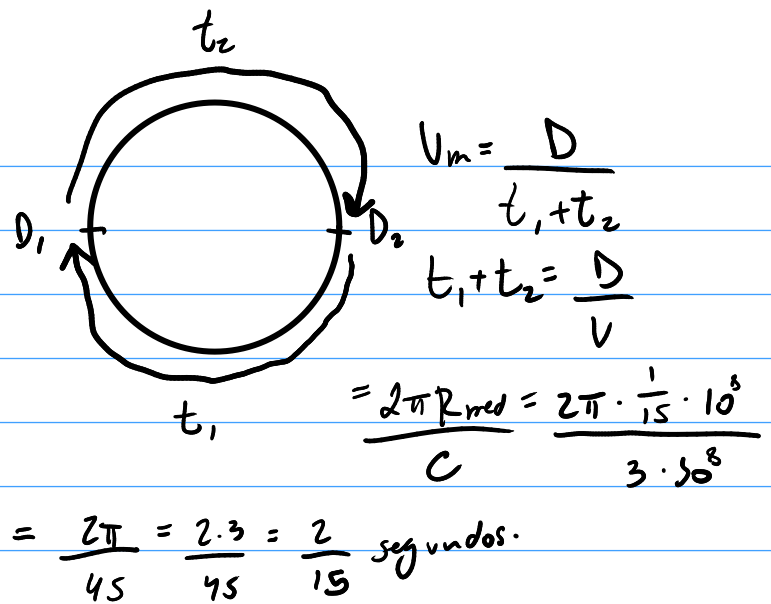 t₂
D₁ D₂
t₁
Vₘ = D / (t₁ + t₂)
t₁ + t₂ = D / V
= 2πRmed / C = 2π · 1/15 · 10⁸ / 3 · 10⁸
= 2π / 45 = 2.3 / 45 = 2 / 15 segundos.